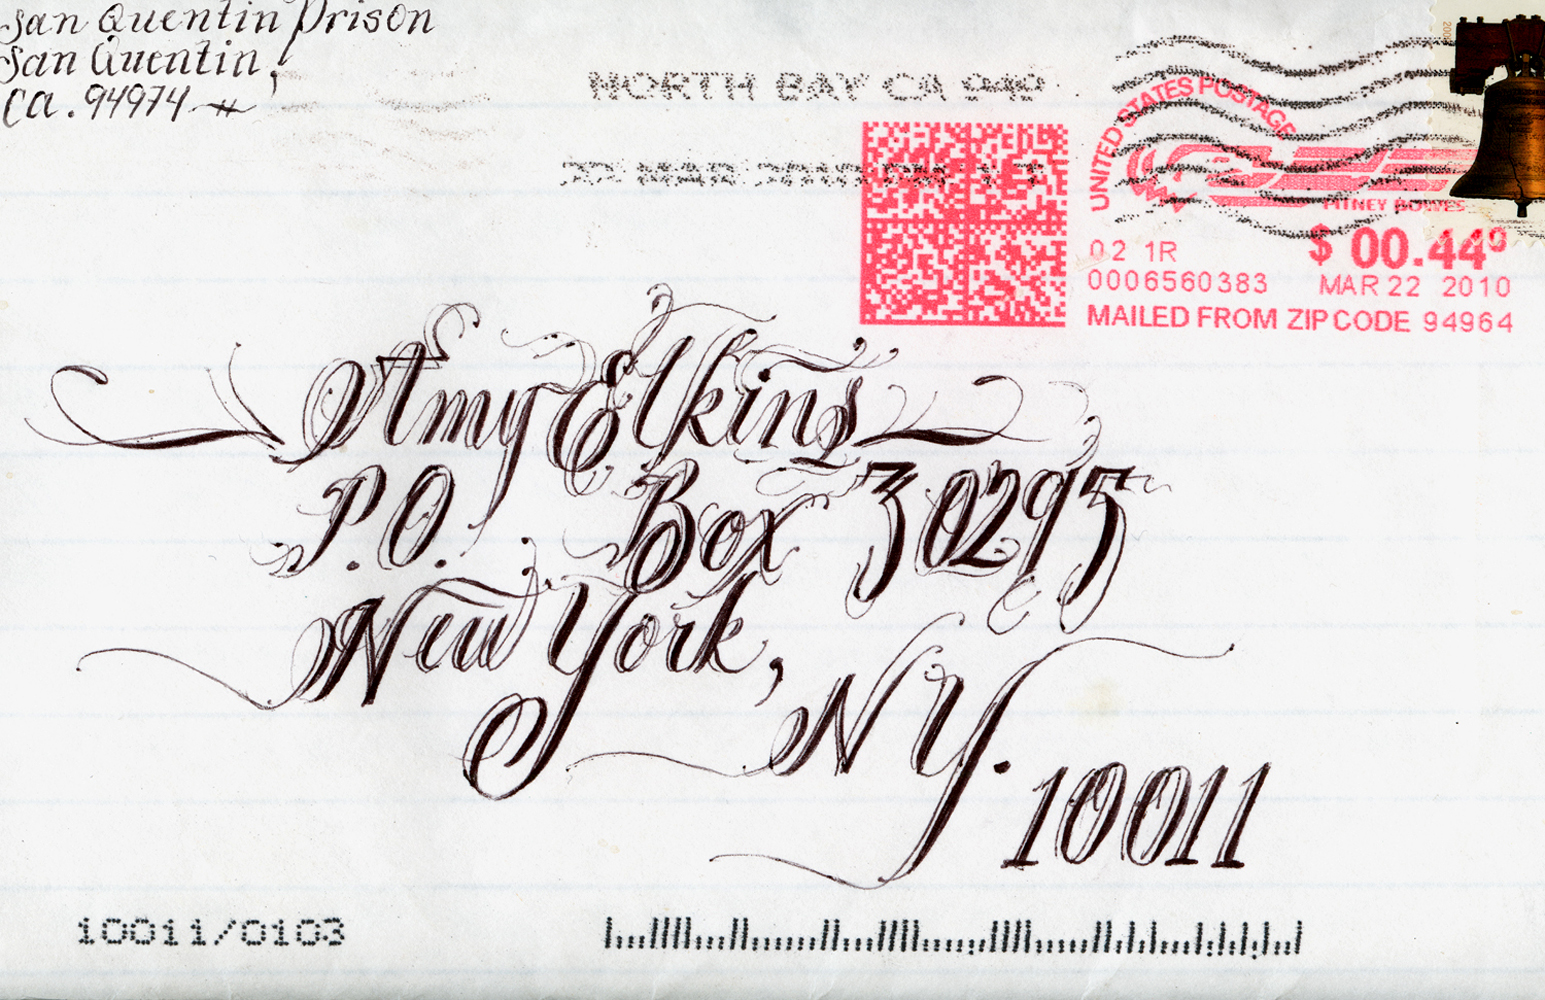 San Quentin Prison
San Quentin,
CA. 94974
NORTH BAY CA 949
22 MAR 2010 PM
UNITED STATES POSTAGE
PITNEY BOWES
02 1R
$ 00.44⁰
0006560383
MAR 22 2010
MAILED FROM ZIP CODE 94964
Amy Elkins
P.O. Box 30295
New York,
NY.
10011
10011/0103